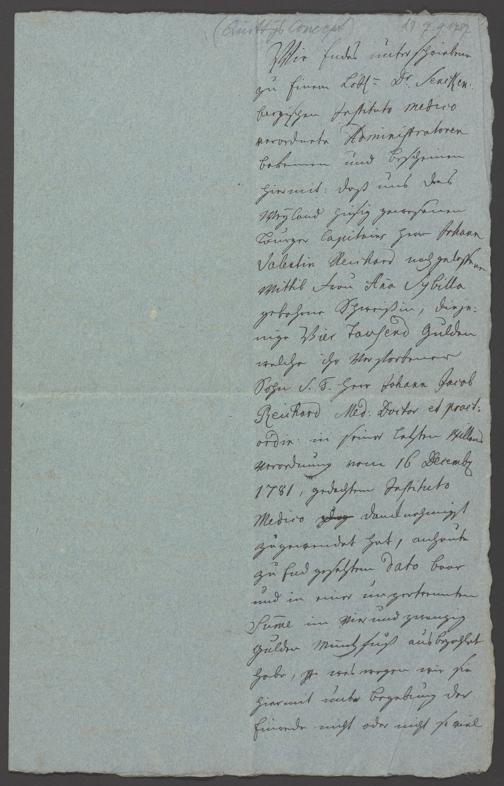 (Quittgs Concept) 19 7 1787
Wir Endes unterschriebene
zu Einem Löbl: Dr. Sencken
bergischen Instituto medico
verordnete Administratoren
bekennen und bescheinen
hiermit: daß uns des
Weyland hiesig gewesenen
Bürger Capitains Herr Johann
Valentin Reinhard nachgelaßene
Wittib Frau Ana Sybilla
gebohrne Schweißin, dieje-
nige Vier Tausend Gulden
welche ihr Verstorbener
Sohn S. T. Herr Johann Jacob
Reinhard Med: Doctor et pract:
ordin: in seiner letzten Willens
Verordnung vom 16 Decembr
1781, gedachtem Instituto
Medico danknehmigst
zugewendet hat, anheute
zu End gesetztem Dato baar
und in einer unzertrennten
Sume im Vier und zwanzig
Gulden Münzfuß ausbezahlt
habe, weswegen wir sie
hiermit unter Begebung der
Einrede nicht oder nicht so viel